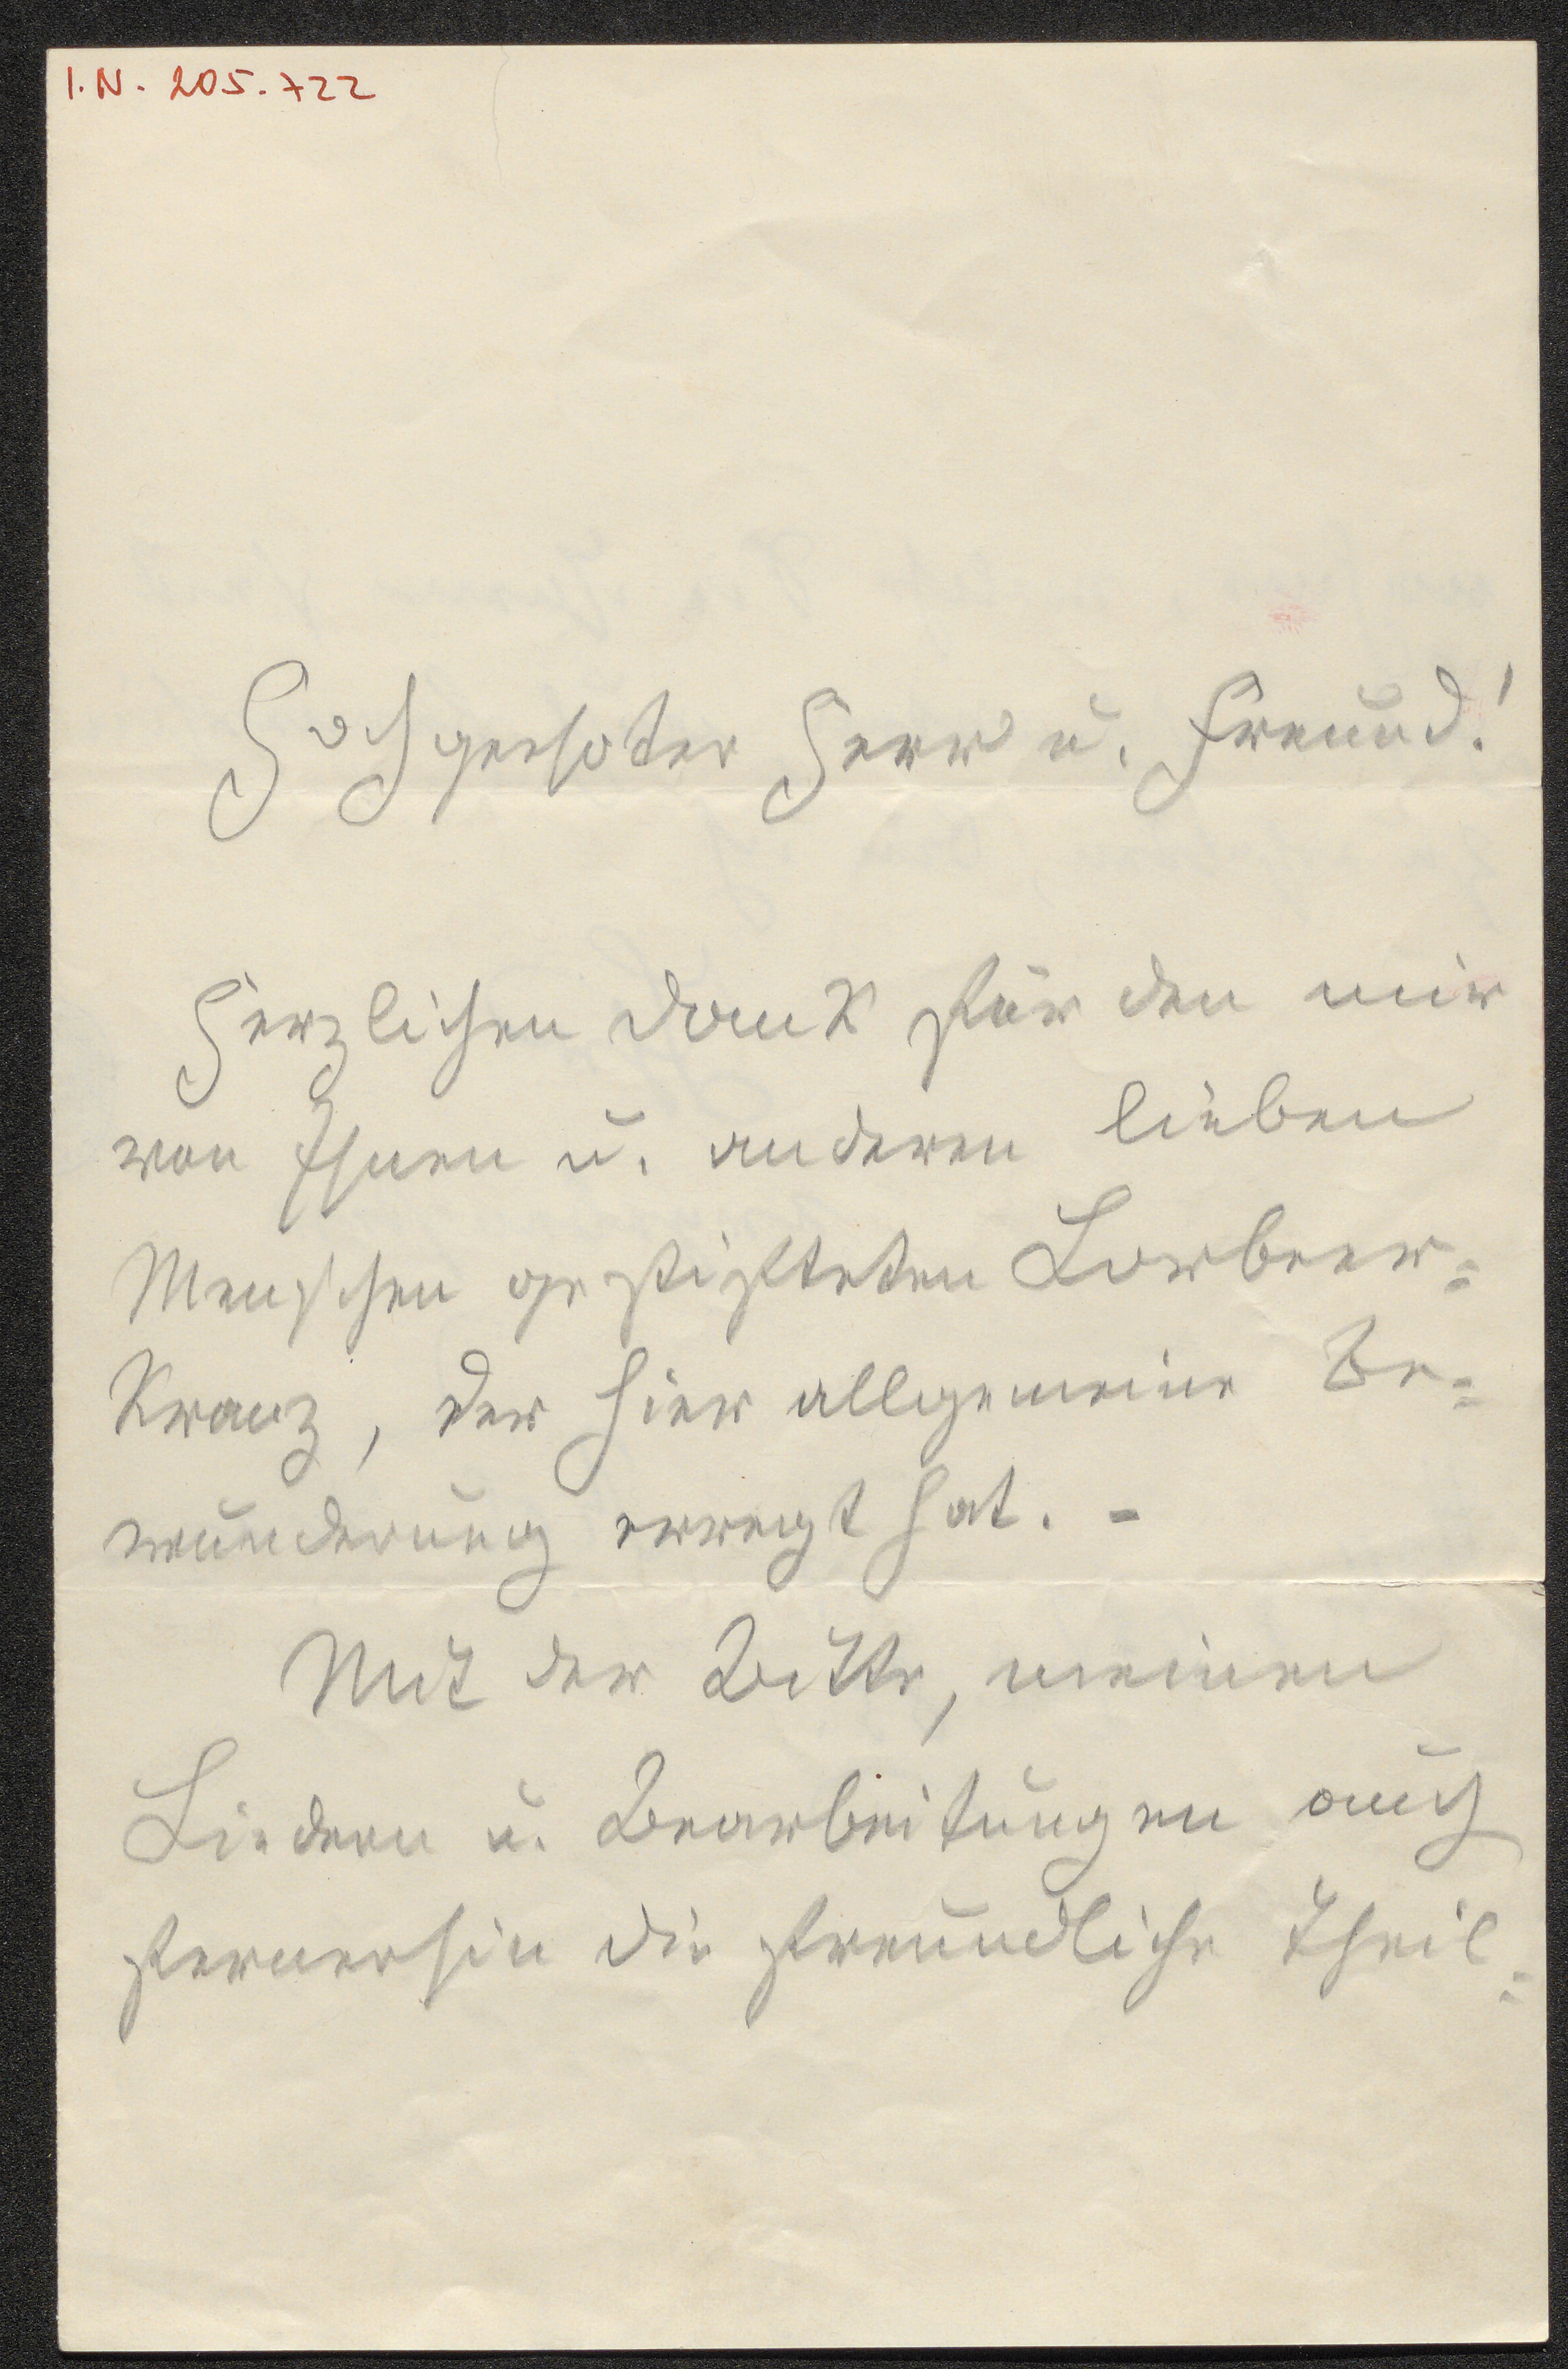 I.N. 205.722
Hochgeehrter Herr u. Freund!
Herzlichen Dank für den mir
von Ihnen u. anderen lieben
Menschen gestifteten Lorbeer=
Kranz, der hier allgemeine Be=
wunderung erregt hat. -
Mit der Bitte, meinen
Liedern u. Bearbeitungen auch
fernerhin die freundliche Theil=